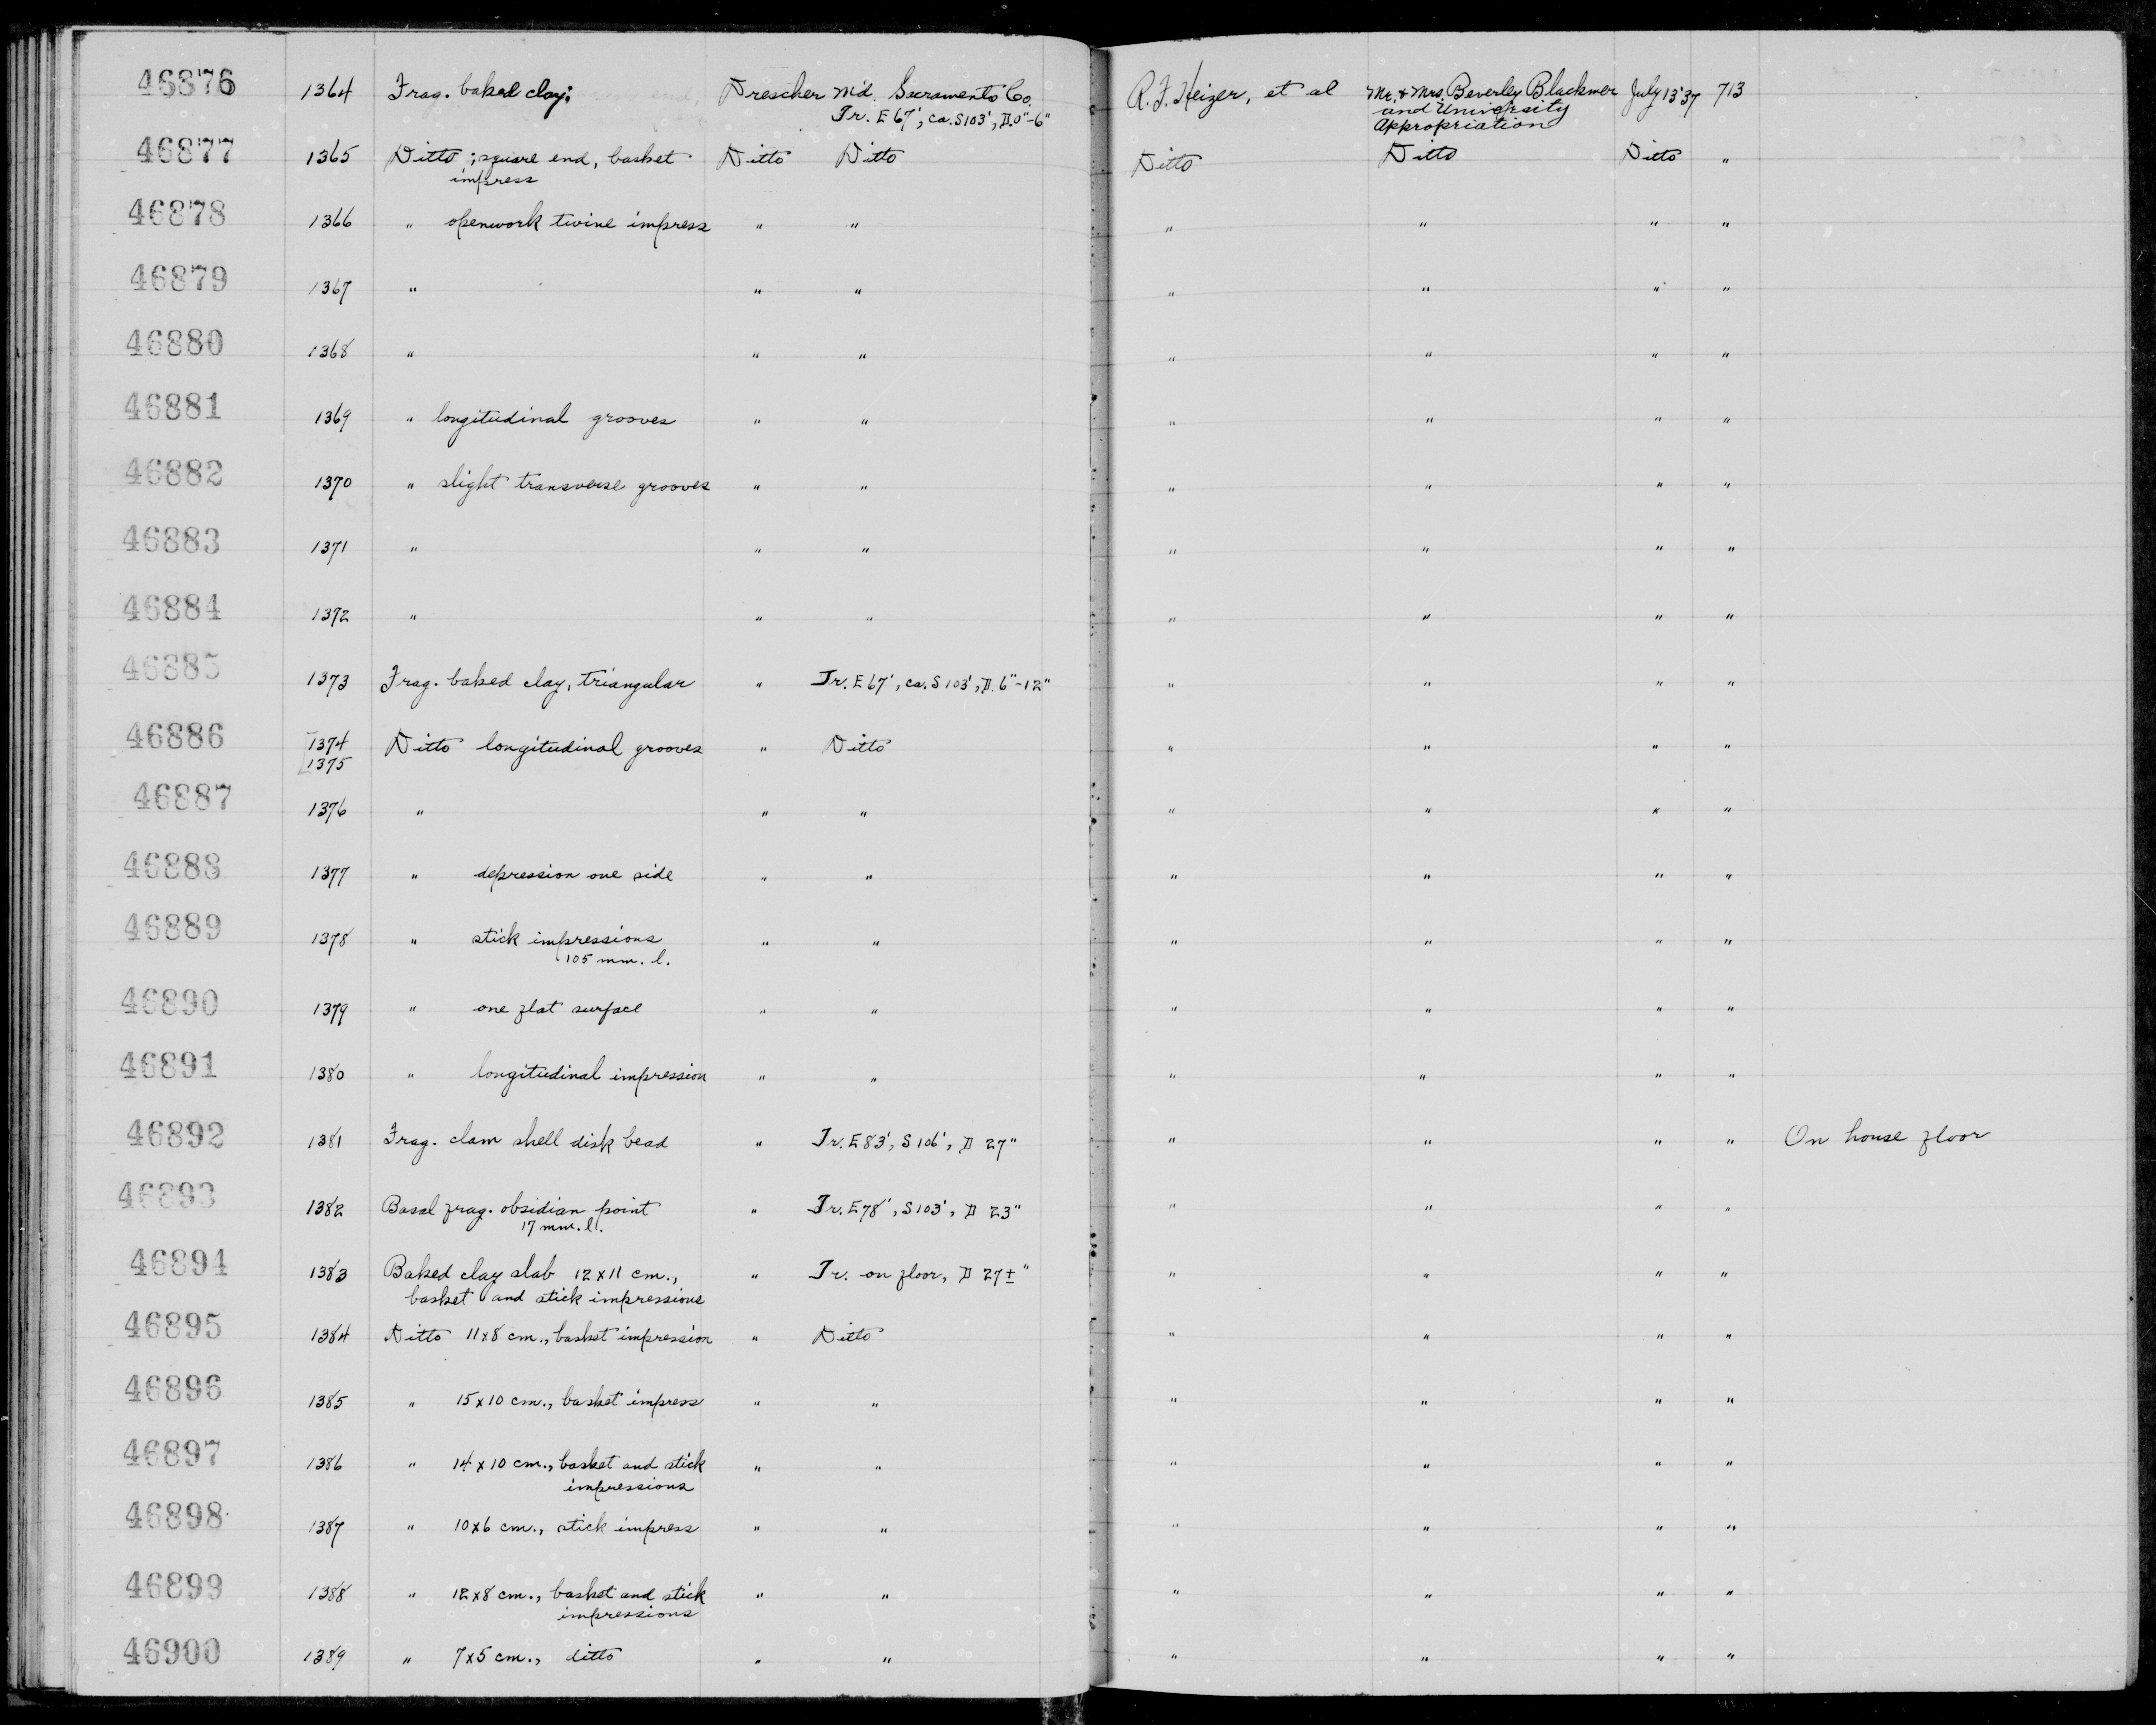 46876 1364 Frag. baked clay; Drescher Md. Sacramento Co. R. F. Heizer, et al Mr. & Mrs. Beverley Blackmer July 13 '37 713
Tr. E 67', ca. S103', D. 0"-6" and University
Appropriation
46877 1365 Ditto ; square end, basket Ditto Ditto Ditto Ditto Ditto "
impress
46878 1366 " openwork twine impress " " " " " "
46879 1367 " " " " " " "
46880 1368 " " " " " " "
46881 1369 " longitudinal grooves " " " " " "
46882 1370 " slight transverse grooves " " " " " "
46883 1371 " " " " " " "
46884 1372 " " " " " " "
46885 1373 Frag. baked clay, triangular " Tr. E 67', ca. S 103', D. 6"-12" " " " "
46886 1374 Ditto longitudinal grooves " Ditto " " " "
1375
46887 1376 " " " " " " "
46888 1377 " depression one side " " " " " "
46889 1378 " stick impressions " " " " " "
105 mm. l.
46890 1379 " one flat surface " " " " " "
46891 1380 " longitudinal impression " " " " " "
46892 1381 Frag. clam shell disk bead " Tr. E 83', S 106', D 27" " " " " On house floor
46893 1382 Basal frag. obsidian point " Tr. E 78', S 103', D 23" " " " "
17 mm. l.
46894 1383 Baked clay slab 12 x 11 cm., " Tr. on floor, D 27±" " " " "
basket and stick impressions
46895 1384 Ditto 11x8 cm., basket impression " Ditto " " " "
46896 1385 " 15 x 10 cm., basket impress " " " " " "
46897 1386 " 14 x 10 cm., basket and stick " " " " " "
impressions
46898 1387 " 10x6 cm., stick impress " " " " " "
46899 1388 " 12x8 cm., basket and stick " " " " " "
impressions
46900 1389 " 7x5 cm., ditto " " " " " "